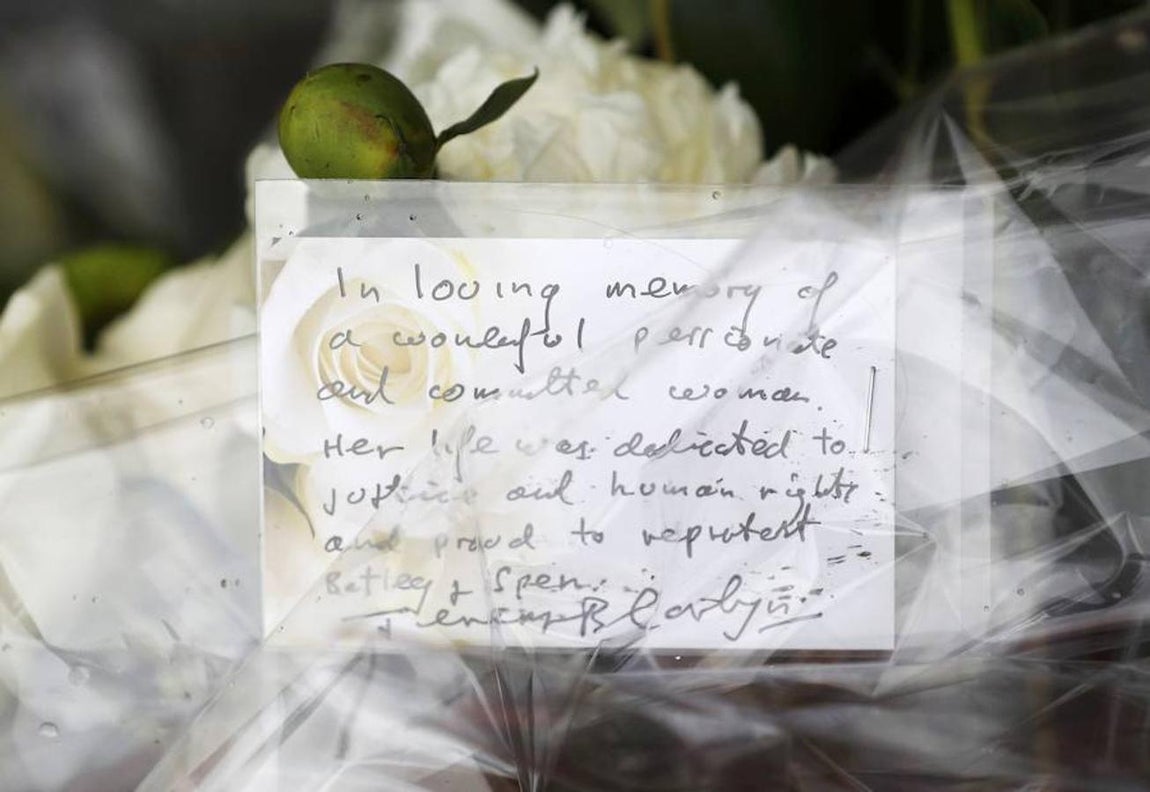 In loving memory of
a wonderful passionate
and committed woman.
Her life was dedicated to
justice and human rights
and proud to represent
Batley & Spen.
Jeremy B Corbyn